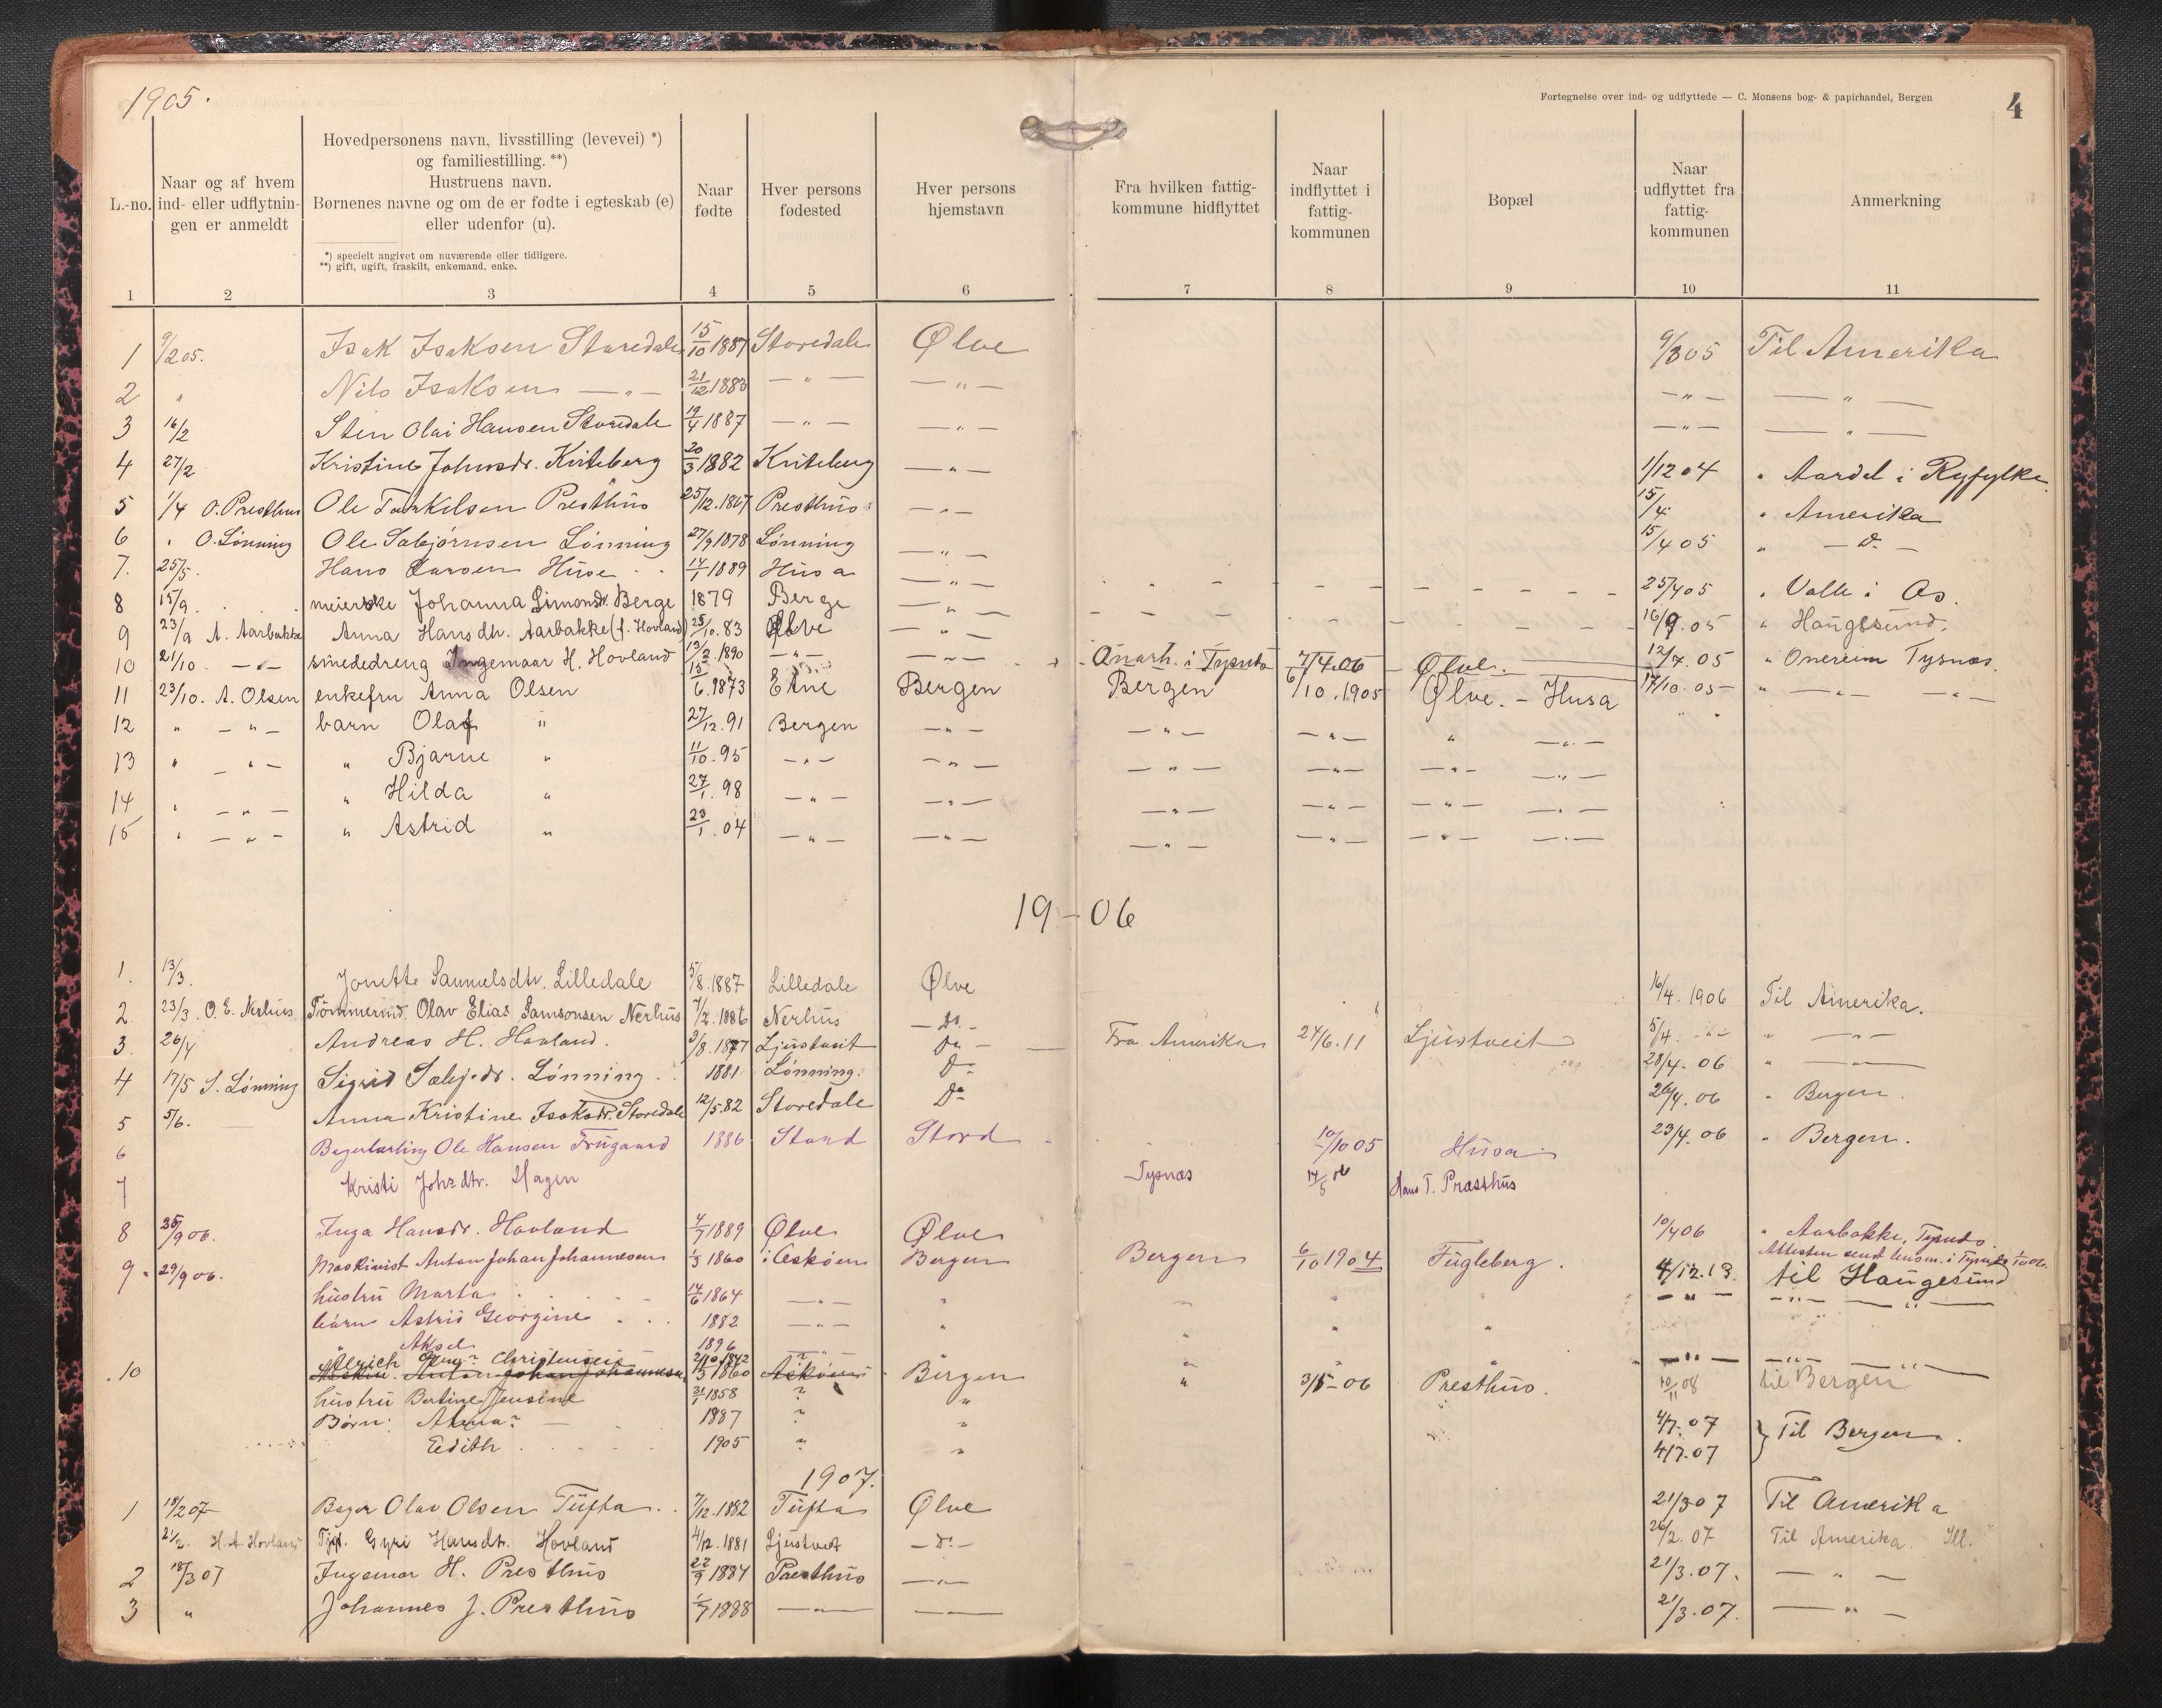 1905.
Fortegnelse over ind- og udflyttede — C. Monsens bog- & papirhandel, Bergen
4
L.-no.
Naar og af hvem ind- eller udflytnin-gen er anmeldt
Hovedpersonens navn, livsstilling (levevei) *)
og familiestilling. **)
Hustruens navn.
Børnenes navne og om de er fødte i egteskab (e)
eller udenfor (u).
*) specielt angivet om nuværende eller tidligere.
**) gift, ugift, fraskilt, enkemand, enke.
Naar fødte
Hver persons fødested
Hver persons hjemstavn
Fra hvilken fattig-kommune hidflyttet
Naar indflyttet i fattig-kommunen
Bopæl
Naar udflyttet fra fattig-kommunen
Anmerkning
1 2 3 4 5 6 7 8 9 10 11
1 9/2 05. Isak Isaksen Storedale 15/10 1887 Storedale Ølve 9/3 05 Til Amerika
2 " Nils Isaksen — " — 21/12 1883 — " — — " — — " — — " —
3 16/2 Sten Olai Hansen Storedale 19/4 1887 — " — — " — — " — — " —
4 27/2 Kristine Johnsdr. Kviteberg 20/3 1882 Kviteberg — " — 1/12 04 " Aardal i Ryfylke.
5 1/4 O. Presthus Ole Torkilsen Presthus 25/12.1867 Presthus — " — 15/4 " Amerika
6 " O. Lønning Ole Sæbjørnsen Lønning 27/9 1878 Lønning — " — 15/4 05 " — D. —
7. 25/5. Hans Larsen Huse 14/1 1889 Husa — " — 25/4 05 " Valle i Os.
8 15/9. meierske Johanna Simonsdr. Berge 1879 Berge — " — 16/9.05 " Haugesund.
9 23/9 A. Aarbakke Anna Hansdtr. Aarbakke (f. Hovland) 25/10.83 Ølve — " — 12/7.05 " Onereim Tysnæs.
10 21/10. — " — smededreng Ingemaar H. Hovland 13/2.1890 — " — — " — Onarh. i Tysnæs 7/4.06 Ølve. 17/10.05 " — " — — " —
11 23/10. A. Olsen enkefru Anna Olsen 15/6.1873 Etne Bergen Bergen 6/10.1905 Ølve. – Husa
12 " — " — barn Olaf " 27/12.91 Bergen — " — — " — — " — " — " —
13 " — " — " Bjarne " 11/10.95 — " — — " — — " — — " — — " — — " —
14 " — " — " Hilda " 27/1.98 — " — — " — — " — — " — — " — — " —
15 " — " — " Astrid " 23/1.04 — " — — " — — " — — " — — " — — " —
19-06
1. 13/3. Jonette Samuelsdtr. Lilledale 5/8.1887 Lilledale Ølve 16/4.1906 Til Amerika.
2. 23/3. O. E. Nerhus Tømmermd. Olav Elias Samsonsen Nerhus 7/2.1886 Nerhus — Do. — 5/4. — " — " — " —
3. 26/4 Andreas H. Hovland. 3/8.1877 Ljustveit Do — Fra Amerika 24/6.11 Ljustveit 28/4.06 " — " —
4 17/5 S. Lønning Sigrid Sæbj.dr. Lønning 1881 Lønning. Do 26/4.06 " Bergen.
5 5/6. Anna Kristine Isaksdr. Storedale 12/5.82 Storedale Do 23/4.06 " Bergen.
6 Bagerlærling Ole Hansen Frugaard 1886 Stord Stord 10/10 05 Husa
7 Kristi Johsdtr. Hagen Tysnæs 14/5 06 Hans T. Præsthus
8 25/9 06. Inga Hansdr. Hovland 4/7 1889 Ølve Ølve 10/4 06 " Aarbakke, Tysnæs.
9. 29/9 06. Maskinist Anton Johan Johannesen 1/3 1860 i Askøen Bergen Bergen 6/10 1904 Fugleberg. 4/12.13. til Haugesund
hustru Marta 14/6 1864 — " — " " " " — " — — " — " —
børn Astrid Georgine 1882 — " — " " " "
" Aksel 1896 — " — — " — " —
10 Alrich Christensen 2/10 1842 ? Bergen " 3/5-06 Presthus. 10/11 08 til Bergen
Maskin. Anton Johan Johannesen 1/3 1860 Askøen
hustru Bertine Jensine 31/1 1858 ? "
Børn: Alma? 1887 ? " 4/7.07 } Til Bergen.
Edith 1905 ? " 4/7.07
1907.
1 18/2 07 Bager Olav Olsen Tufta 7/12.1882 Tufta Ølve 21/3 07 Til Amerika
21/2. H. A. Hovland Tjp. Gyri Hansdtr. Hovland 4/12.1881 Ljustveit — D. — 26/2.07 Til Amerika. Ill.
2 18/3 07 Ingemar H. Presthus 22/9 1884 Presthus — " — 21/3.07. — " —
3 " Johannes J. Presthus 1/7 1888 — " — — — 21/3.07. — " —